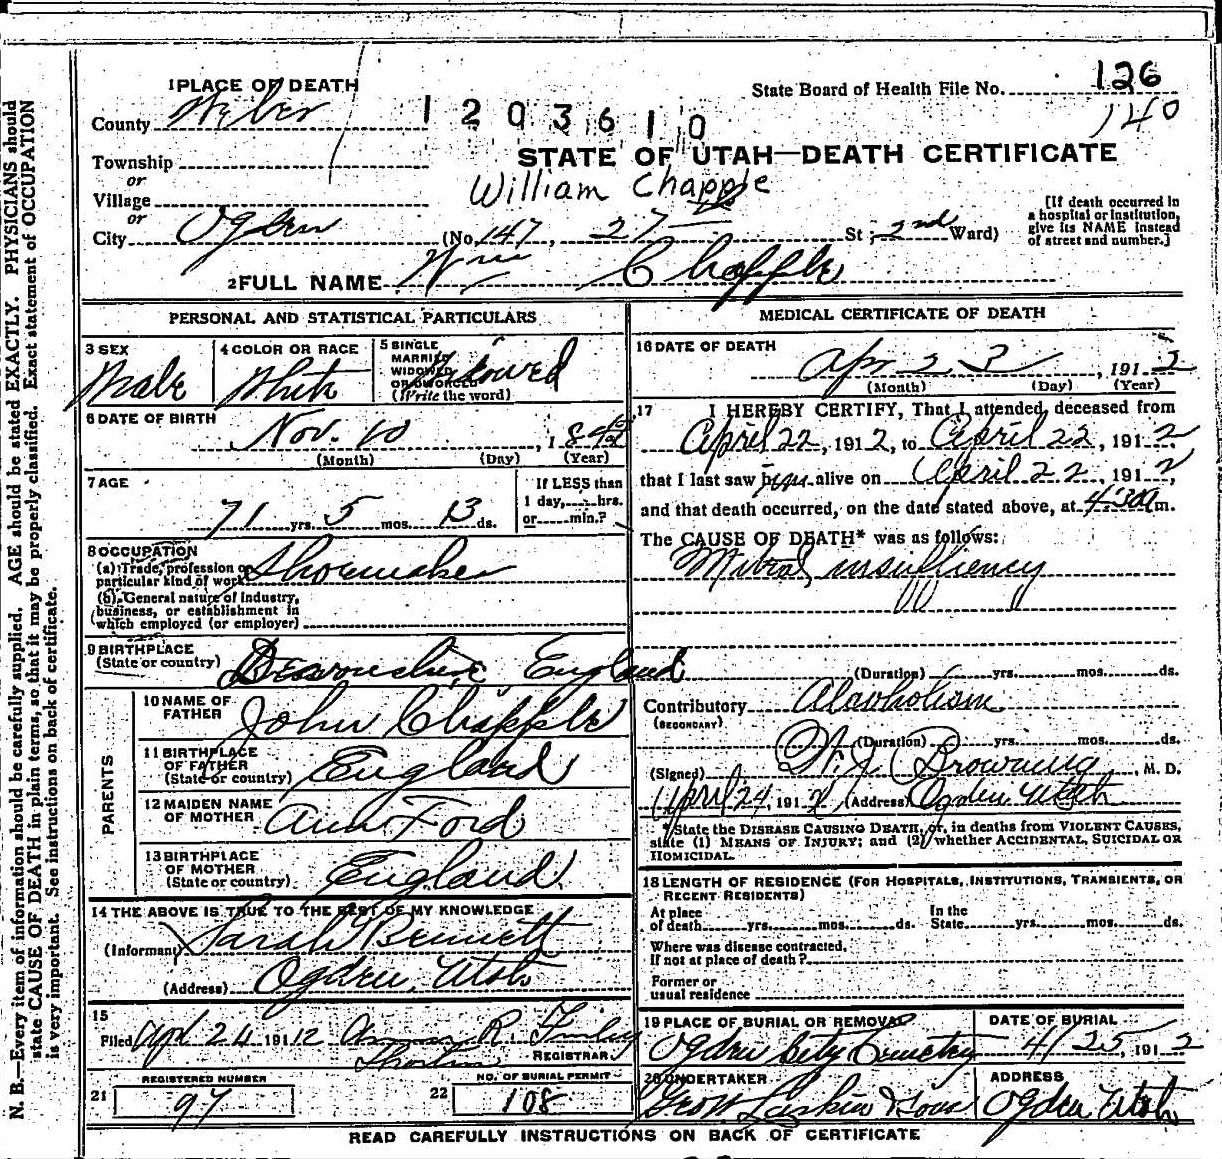 126
1 PLACE OF DEATH
State Board of Health File No.
140
County Weber
1203610
STATE OF UTAH—DEATH CERTIFICATE
Township
or
William Chapple
Village
or
[If death occurred in a hospital or institution, give its NAME instead of street and number.]
City Ogden (No. 147, 27 St.; 2nd Ward)
2 FULL NAME Wm Chapple
PERSONAL AND STATISTICAL PARTICULARS
3 SEX
Male
4 COLOR OR RACE
White
5 SINGLE
MARRIED
WIDOWED
OR DIVORCED
(Write the word)
Widowed
6 DATE OF BIRTH
Nov. 10, 1842
(Month) (Day) (Year)
7 AGE
71 yrs. 5 mos. 13 ds.
If LESS than
1 day, hrs.
or min.?
8 OCCUPATION
(a) Trade, profession or
particular kind of work Shoemaker
(b) General nature of industry,
business, or establishment in
which employed (or employer)
9 BIRTHPLACE
(State or country) Devonshire England
PARENTS
10 NAME OF
FATHER John Chapple
11 BIRTHPLACE
OF FATHER
(State or country) England
12 MAIDEN NAME
OF MOTHER Ann Ford
13 BIRTHPLACE
OF MOTHER
(State or country) England
14 THE ABOVE IS TRUE TO THE BEST OF MY KNOWLEDGE
(Informant) Sarah Bennett
(Address) Ogden Utah
15
Filed Apr 24 1912 R. REGISTRAR
REGISTERED NUMBER
21 97
NO. OF BURIAL PERMIT
22 108
MEDICAL CERTIFICATE OF DEATH
16 DATE OF DEATH
Apr 23, 1912
(Month) (Day) (Year)
17 I HEREBY CERTIFY, That I attended deceased from
April 22, 1912, to April 22, 1912
that I last saw him alive on April 22, 1912,
and that death occurred, on the date stated above, at 4:30 a m.
The CAUSE OF DEATH* was as follows:
Mitral insufficiency
(Duration) yrs. mos. ds.
Contributory Alcoholism
(SECONDARY)
(Duration) yrs. mos. ds.
(Signed) Browning, M. D.
April 24, 1912 (Address) Ogden Utah
*State the DISEASE CAUSING DEATH, or, in deaths from VIOLENT CAUSES,
state (1) MEANS OF INJURY; and (2) whether ACCIDENTAL, SUICIDAL OR
HOMICIDAL.
18 LENGTH OF RESIDENCE (FOR HOSPITALS, INSTITUTIONS, TRANSIENTS, OR
RECENT RESIDENTS)
At place
of death yrs. mos. ds.
In the
State yrs. mos. ds.
Where was disease contracted,
If not at place of death?
Former or
usual residence
19 PLACE OF BURIAL OR REMOVAL
Ogden City Cemetry
DATE OF BURIAL
4/25, 1912
20 UNDERTAKER
Geo W. Larkin & Sons
ADDRESS
Ogden Utah
READ CAREFULLY INSTRUCTIONS ON BACK OF CERTIFICATE
N. B.—Every item of information should be carefully supplied. AGE should be stated EXACTLY. PHYSICIANS should
state CAUSE OF DEATH in plain terms, so that it may be properly classified. Exact statement of OCCUPATION
is very important. See instructions on back of certificate.